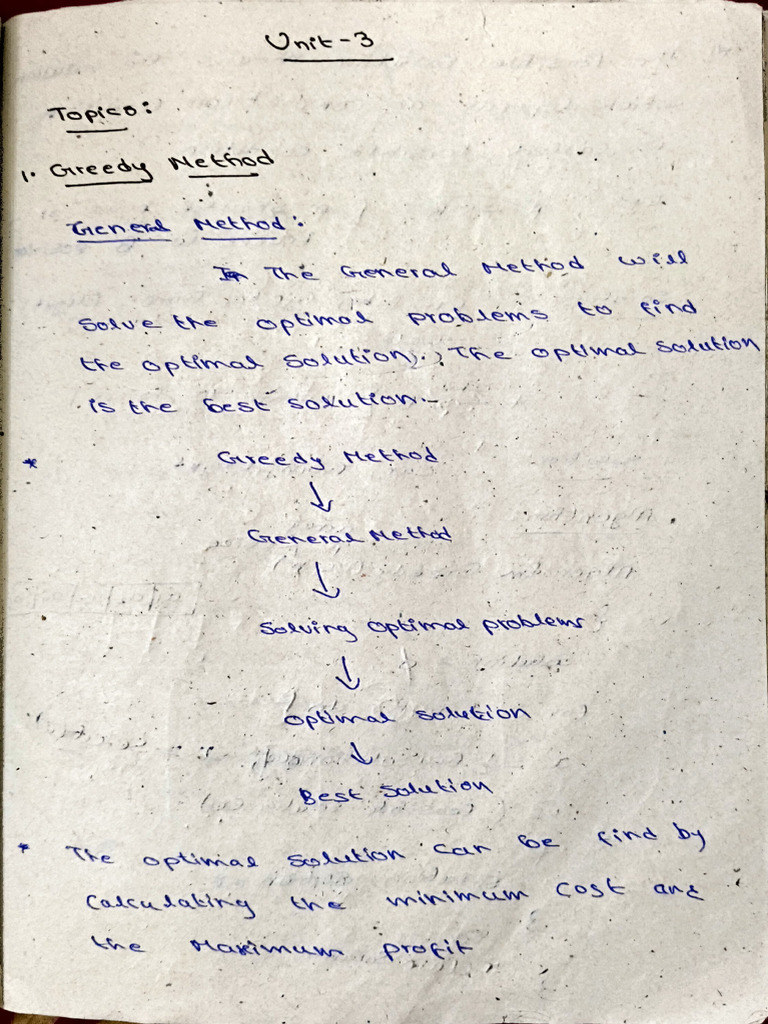 Unit-3
Topics:
1. Greedy Method
General Method:
The General Method will
solve the optimal problems to find
the optimal solution. The optimal solution
is the best solution.
* Greedy Method
↓
General Method
↓
Solving optimal problems
↓
optimal solution
↓
Best Solution
* The optimal solution can be find by
calculating the minimum cost and
the Maximum profit